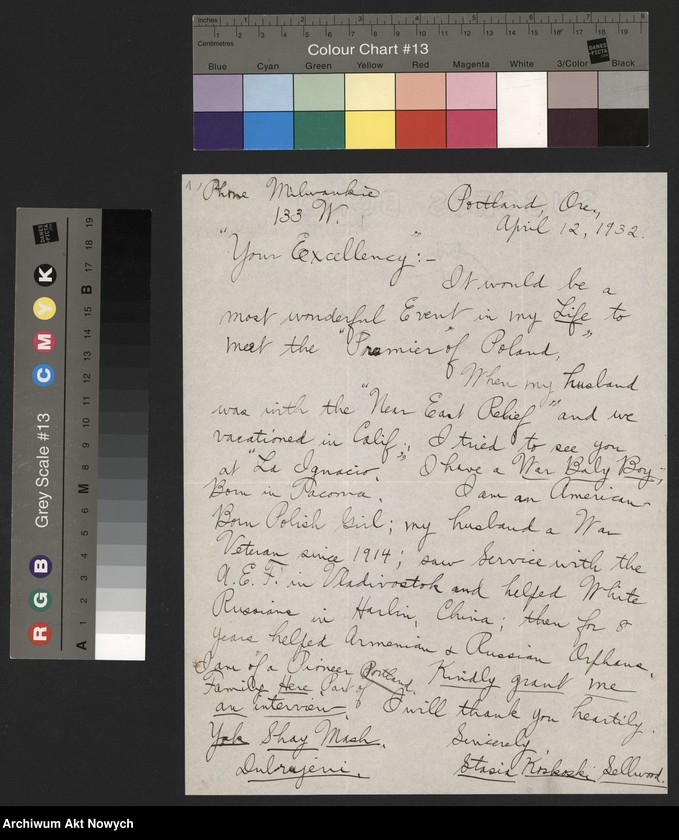 Inches 1 2 3 4 5 6 7 8
Centimetres 1 2 3 4 5 6 7 8 9 10 11 12 13 14 15 16 17 18 19
Colour Chart #13
DANES
PICTA
Blue Cyan Green Yellow Red Magenta White 3/Color Black
Grey Scale #13
R G B C M Y K
A 1 2 3 4 5 6 M 8 9 10 11 12 13 14 15 B 17 18 19
1) Phone Milwaukie
133 W.
Portland, Ore,
April 12, 1932.
"Your Excellency":-
It would be a
most wonderful Event in my Life to
meet the "Premier of Poland,"
When my husband
was with the "Near East Relief" and we
vacationed in Calif., I tried to see you
at "La Ignacio." I have a War Baby Boy,
Born in Tacoma. I am an American
Born Polish Girl; my husband a War
Veteran since 1914; saw Service with the
A.E.F. in Vladivostok and helped White
Russians in Harbin, China; then for 8
years helped Armenian & Russian Orphans.
I am of a Pioneer Portland.
Family Here Part of Kindly grant me
an interview. I will thank you heartily.
Yak Shay Mash. Sincerely,
Stasia Koskoski Sellwood.
Archiwum Akt Nowych